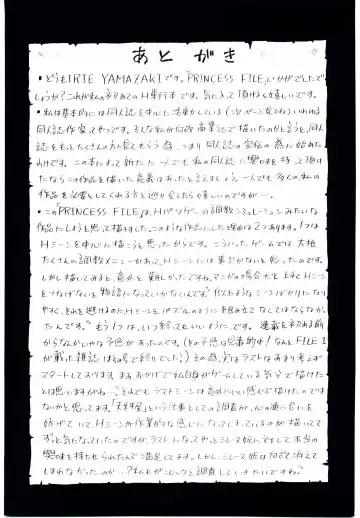 あとがき
・どうもIRIE YAMAZAKIです。「PRINCESS FILE」いかがでしたで
しょうか?これが私の初めてのH単行本です。気に入って頂けると嬉しいです。
・私は基本的には同人誌を中心に活動している(次ページ見てね)いわゆる
同人誌作家ってやつです。そんな私が何故商業誌で描いたのかと言うと、同人
誌をもっとたくさんの方に見てもらう為、つまり同人誌の宣伝の為に始めた
わけです。この本によって新たに一人でも私の同人誌に興味を持って頂け
たならこの作品を描いた意義はあったと言えましょう。一人でも多くの、私の
作品を必要としてくれる方と巡り会えたら嬉しいのですが…。
・この「PRINCESS FILE」は、Hパソゲーの調教シミュレーションみたいな
作品にしようと思って描きました。このような作品にした理由は2つあります。1つは
Hシーンを中心に描こうと思ったからです。こういったゲームでは大抵
たくさんの調教メニューがあって、Hシーンには事欠かないと思ったのです。
しかし描いてみると、意外と難しかったですね。マンガの場合だと上手くHシーン
をつなげないと物語になっていかないんです。似たようなシーンばかりになり
やすく、それを避けるのにHシーンをパズルのように組み立てなくてはならなかっ
たんです。もう1つは、いつ終ってもいいようにです。連載を初める前
からなんかいやな予感があったのです。(その予感は見事的中!なんとFILE 1
が載った雑誌はその号で終りでした)その為、実はラストはあまり考えずに
スタートしてあります。まあ、おかげで私自身がゲームしている気分で描けた
とは思いますがね…。それでもラストシーンは意外にいい感じで描けたのでは
ないかと思ってます。という仕事としての調教が、心の通い合いを
妨げていて、Hシーンが作業的な感じになってしまっているのが描いてて
ずっと気になっていたのですが、ラストになってやっとシレーヌ姫に対して本当の
興味を持たせられたんで満足してます。しかし、シレーヌ姫は何故消えて
しまわなかったのか…?私もじっくりと調査していきたいですね。